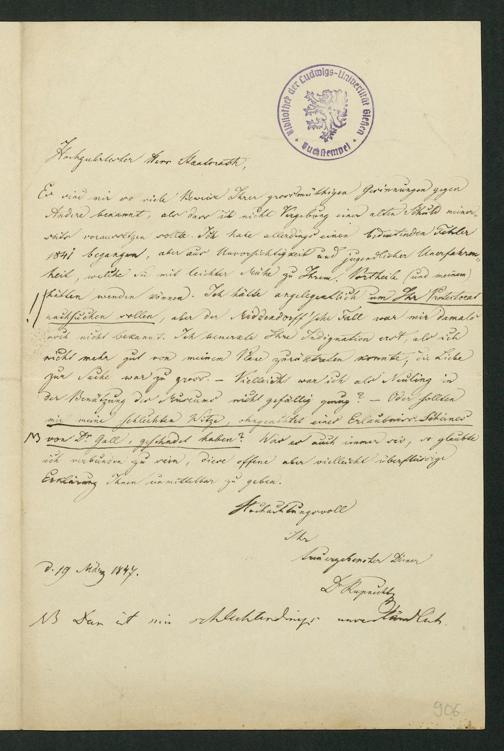 Bibliothek der Ludwigs-Universität Gießen
Buchstempel
Hochgeehrtester Herr Staatsrath,
Es sind mir so viele Beweise Ihrer grossmüthigen Gesinnungen gegen
Andere bekannt, als dass ich nicht Vergebung einer alten Schuld
voraussetzen sollte. Ich habe allerdings einen Fehler
1841 begangen, aber aus Unvorsichtigkeit und jugendlicher Unerfahren-
heit, welche Sie mit leichter Mühe zu Ihrem Vortheile (und meinem)
hätten wenden können. Ich hätte angelegentlich um Ihr Protectorat
nachsuchen sollen, aber der Middendorff'sche Fall war mir damals
noch nicht bekannt. Ich bemerkte Ihre Indignation erst, als ich
nicht mehr gut von meinem Wege zurücktreten konnte, die Liebe
zur Sache war zu gross. – Vielleicht war ich als Neuling in
der Benützung des Museums nicht gefällig genug? – Oder sollten
mir meine schlechten Witze, eines Erlaubniss-Scheines
NB von Dr Gall, geschadet haben? Wie es auch immer sei, so glaubte
ich verbunden zu sein, diese offene aber vielleicht überflüssige
Erklärung Ihnen unmittelbar zu geben.
Hochachtungsvoll
Ihr
ergebenster Diener
Dr Ruprecht
d. 19 März 1847.
NB Das ist mir schlechterdings unverständlich.
906